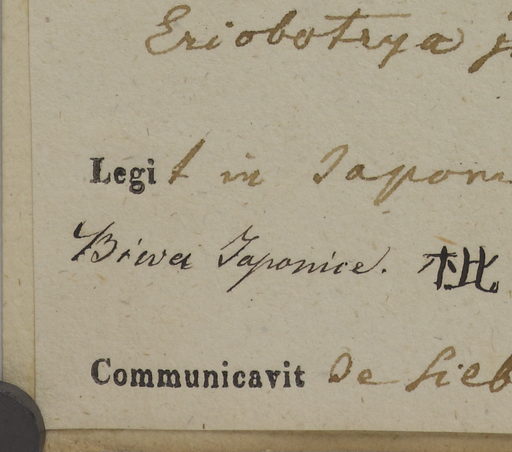 Eriobotrya j
Legit in Japon
Biwa Japonice. 枇
Communicavit De Sieb